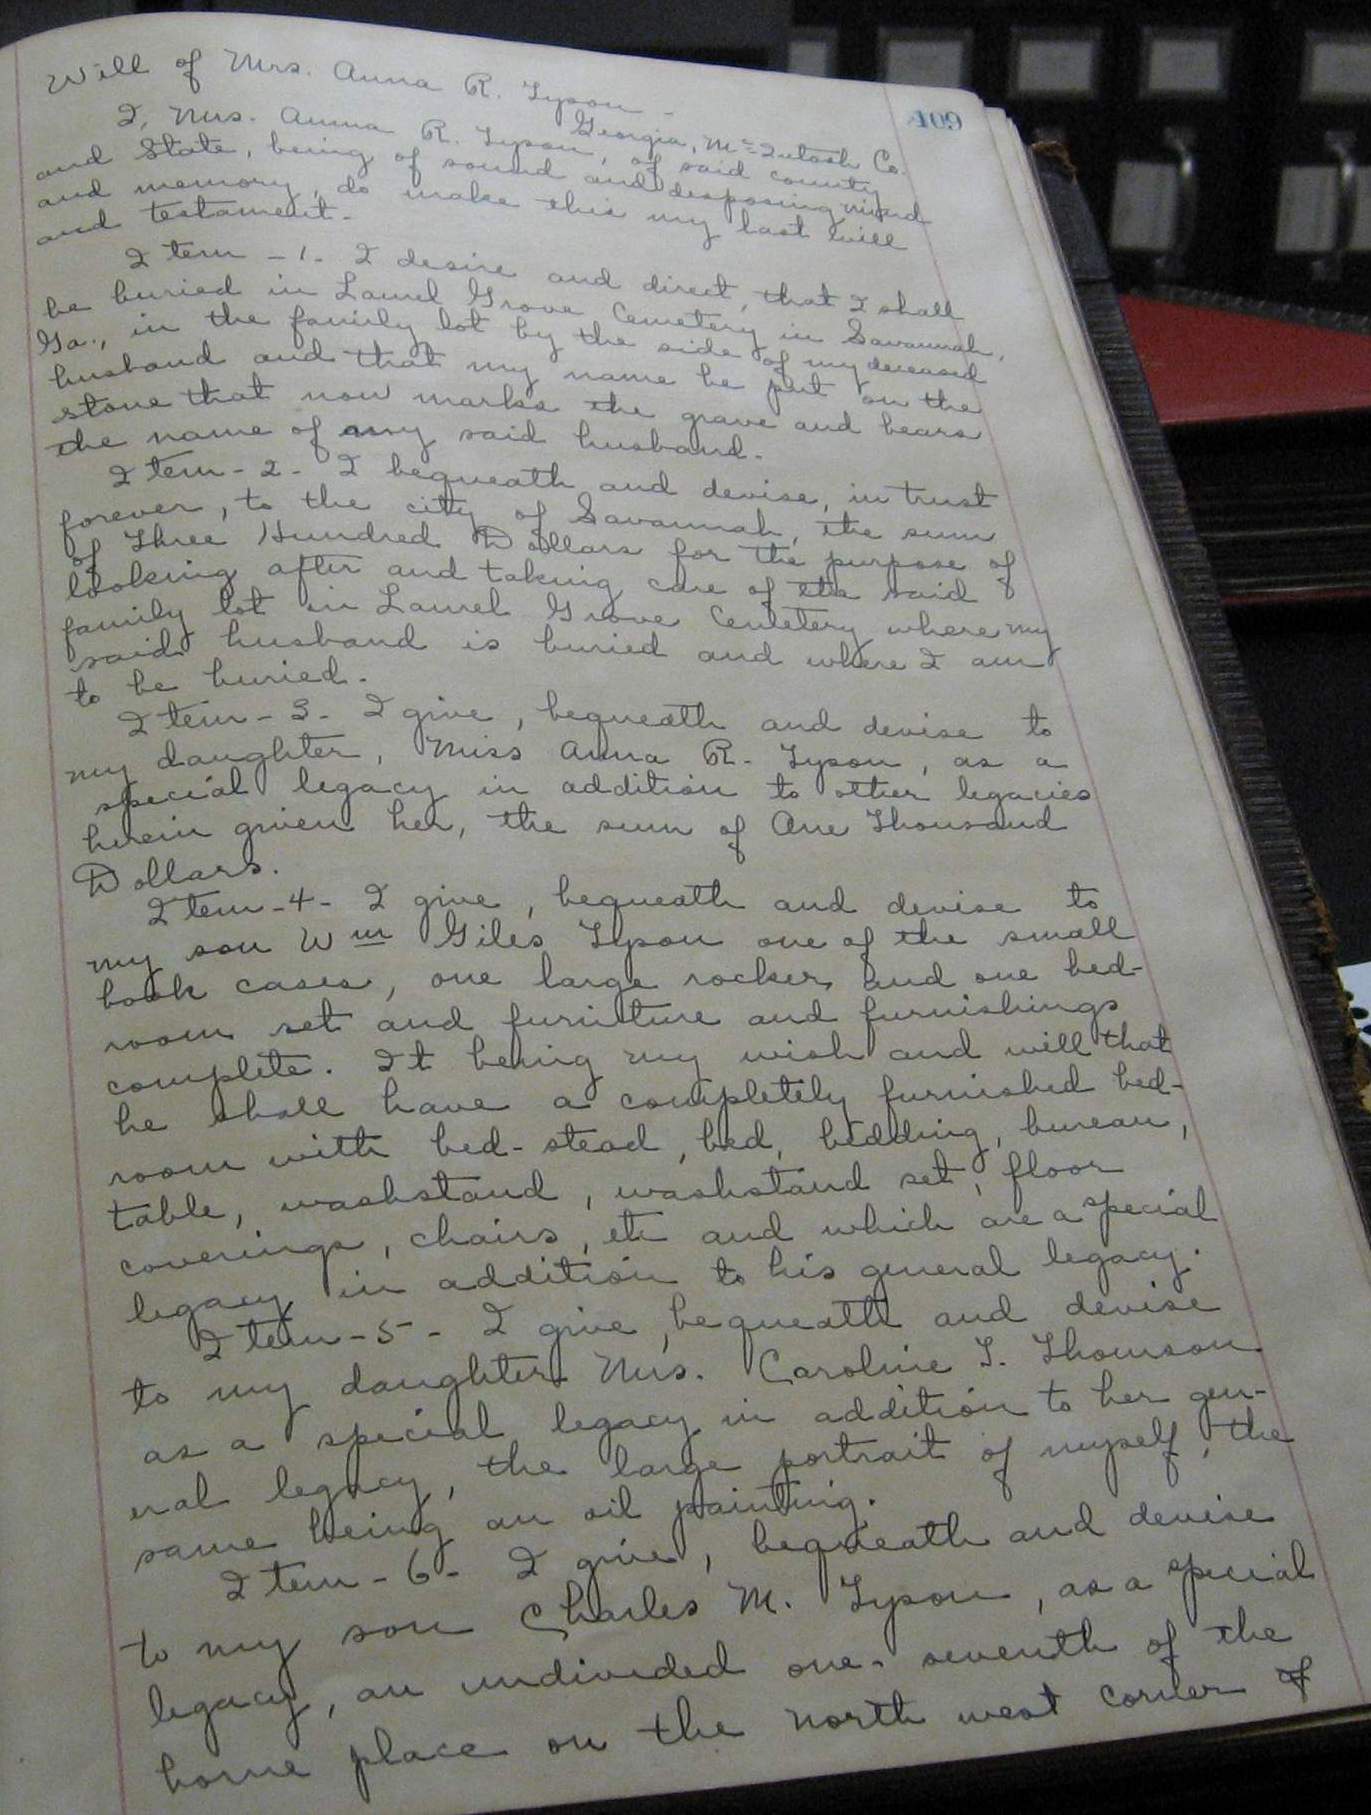 409
Will of Mrs. Anna R. Tyson -
Georgia, McIntosh Co.
I, Mrs. Anna R. Tyson, of said county
and State, being of sound and disposing mind
and memory, do make this my last will
and testament.
Item - 1 - I desire and direct, that I shall
be buried in Laurel Grove Cemetery in Savannah,
Ga., in the family lot by the side of my deceased
husband and that my name be put on the
stone that now marks the grave and bears
the name of my said husband.
Item - 2 - I bequeath and devise, in trust
forever, to the city of Savannah, the sum
of Three Hundred Dollars for the purpose of
looking after and taking care of the said
family lot in Laurel Grove Cemetery where my
said husband is buried and where I am
to be buried.
Item - 3 - I give, bequeath and devise to
my daughter, Miss Anna R. Tyson, as a
special legacy in addition to other legacies
herein given her, the sum of One Thousand
Dollars.
Item - 4 - I give, bequeath and devise to
my son Wm Giles Tyson one of the small
book cases, one large rocker and one bed-
room set and furniture and furnishings
complete. It being my wish and will that
he shall have a completely furnished bed-
room with bed-stead, bed, bedding, bureau,
table, washstand, washstand set, floor
coverings, chairs, etc and which are a special
legacy in addition to his general legacy.
Item - 5 - I give, bequeath and devise
to my daughter Mrs. Caroline T. Thomson
as a special legacy in addition to her gen-
eral legacy, the large portrait of myself, the
same being an oil painting.
Item - 6 - I give, bequeath and devise
to my son Charles M. Tyson, as a special
legacy, an undivided one-seventh of the
home place on the north west corner of